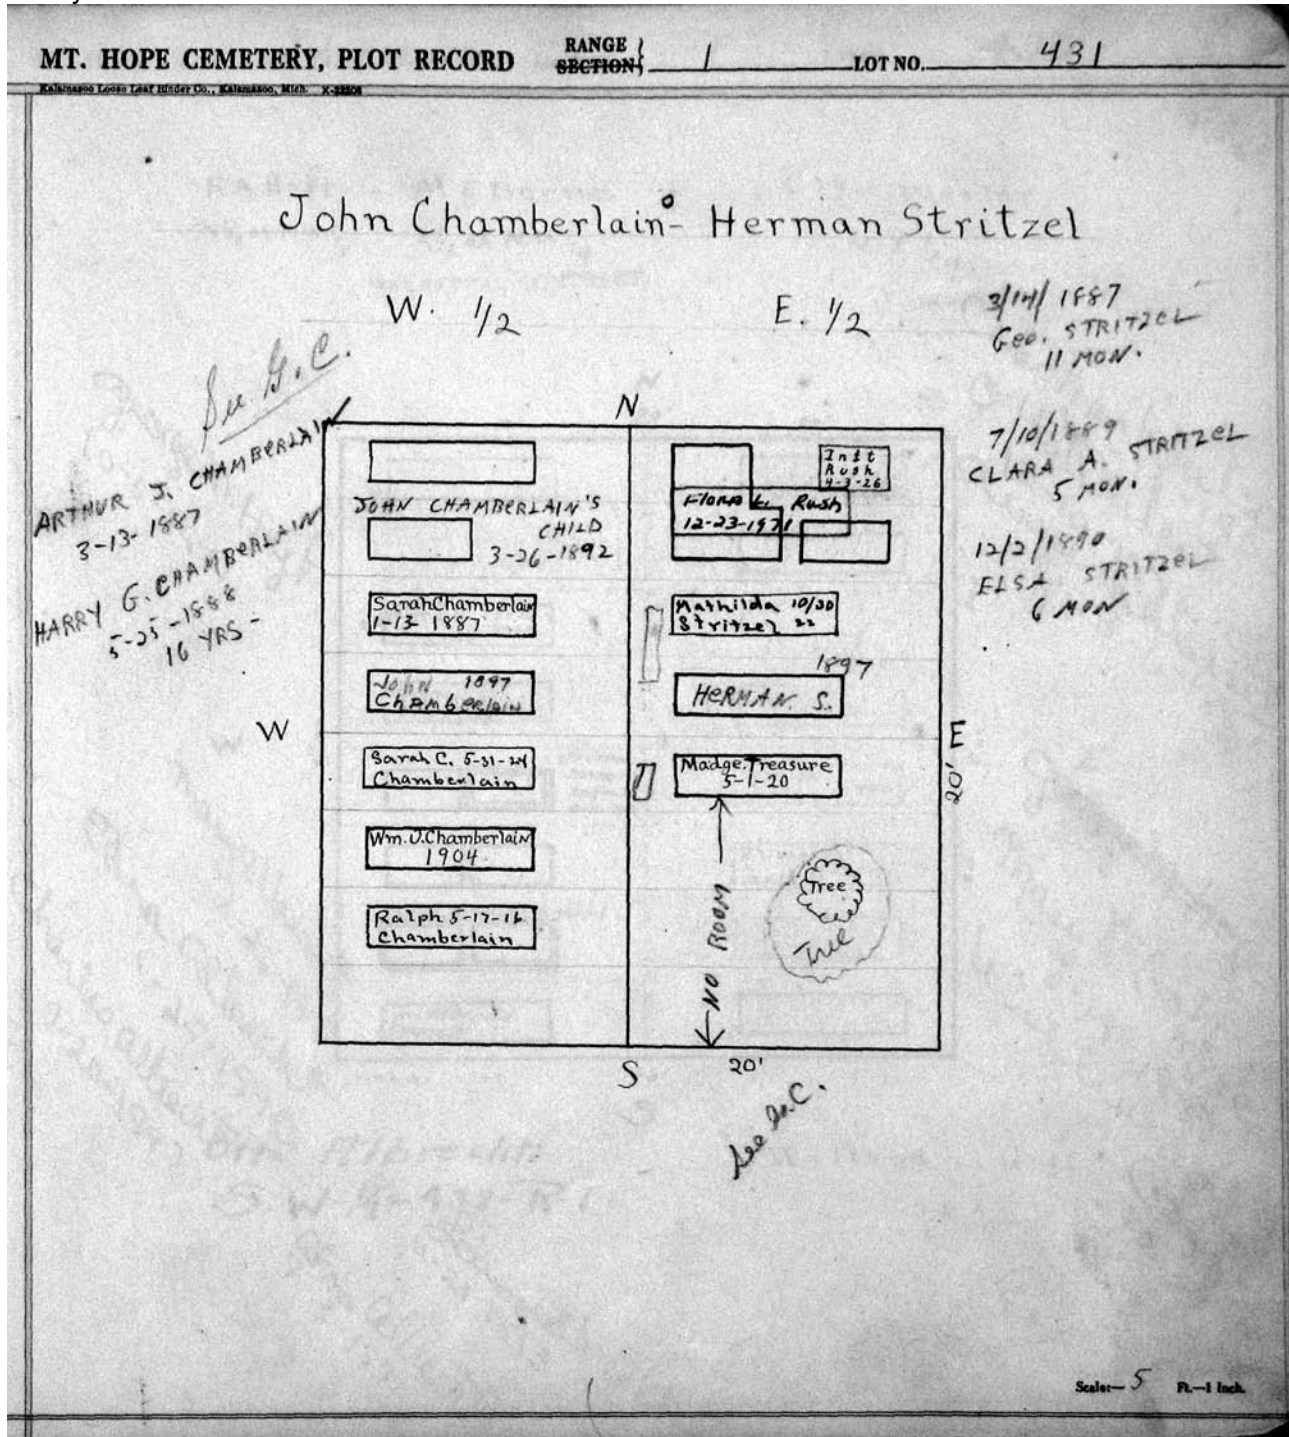 MT. HOPE CEMETERY, PLOT RECORD RANGE SECTION 1 LOT NO. 431
Kalamazoo Loose Leaf Binder Co., Kalamazoo, Mich.
John Chamberlain - Herman Stritzel
W. 1/2
E. 1/2
3/14/1887
Geo. STRITZEL
11 MON.
7/10/1889
CLARA A. STRITZEL
5 MON.
12/2/1890
ELSA STRITZEL
6 MON
See G.C.
ARTHUR J. CHAMBERLAIN
3-13-1887
HARRY G. CHAMBERLAIN
5-25-1888
16 YRS-
N
JOHN CHAMBERLAIN'S
CHILD
3-26-1892
Sarah Chamberlain
1-13 1887
John 1897
Chamberlain
Sarah C. 5-31-24
Chamberlain
Wm. J. Chamberlain
1904
Ralph 5-17-16
Chamberlain
W
Inft
Rush
4-3-26
Flora L. Rush
12-23-1971
Mathilda 10/30
Stritzel 22
1897
HERMAN. S.
Madge Treasure
5-1-20
E
20'
NO ROOM
Tree
Tree
S
20'
See G.C.
Scale:— 5 Ft.—1 Inch.